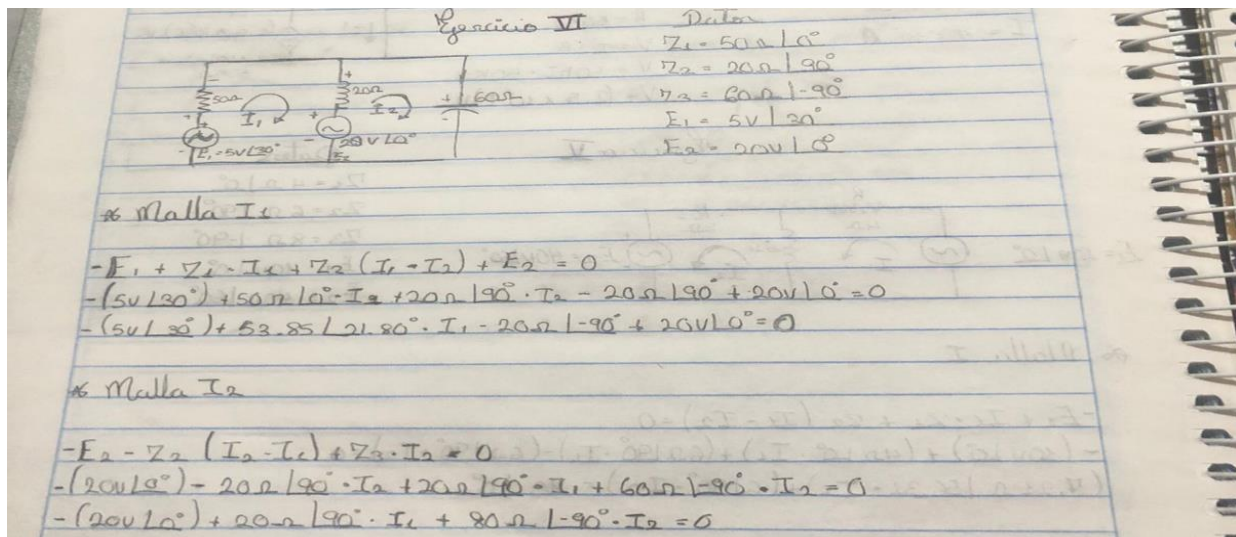 Ejercicio VI
Datos
Z1 = 50Ω∠0°
Z2 = 20Ω∠90°
Z3 = 60Ω∠-90°
E1 = 5V∠30°
E2 = 20V∠0°
50Ω
I1
E1=5V∠30°
20Ω
I2
20V∠0°
E2
60Ω
* Malla I1
-E1 + Z1 · I1 + Z2 (I1 - I2) + E2 = 0
-(5V∠30°) + 50Ω∠0° · I2 + 20Ω∠90° · I2 - 20Ω∠90° + 20V∠0° = 0
-(5V∠30°) + 53.85∠21.80° · I1 - 20Ω∠-90° + 20V∠0° = 0
* Malla I2
-E2 - Z2 (I2 - I1) + Z3 · I2 = 0
-(20V∠0°) - 20Ω∠90° · I2 + 20Ω∠90° · I1 + 60Ω∠-90° · I2 = 0
-(20V∠0°) + 20Ω∠90° · I1 + 80Ω∠-90° · I2 = 0